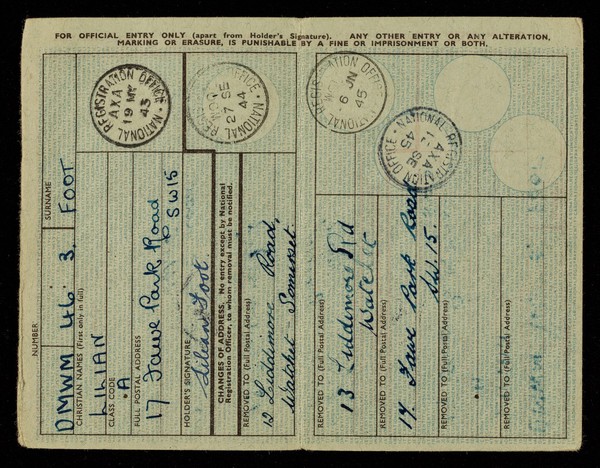 FOR OFFICIAL ENTRY ONLY (apart from Holder's Signature). ANY OTHER ENTRY OR ANY ALTERATION,
MARKING OR ERASURE, IS PUNISHABLE BY A FINE OR IMPRISONMENT OR BOTH.
NUMBER
SURNAME
DMWM 46 3. FOOT
CHRISTIAN NAMES (First only in full)
LILIAN
CLASS CODE
A
FULL POSTAL ADDRESS
17 Fawe Park Road
SW15
HOLDER'S SIGNATURE
Lilian Foot
CHANGES OF ADDRESS. No entry except by National
Registration Officer, to whom removal must be notified.
REMOVED TO (Full Postal Address)
12 Liddimore Road,
Watchet Somerset
REMOVED TO (Full Postal Address)
13 Liddimore Rd
Watchet
REMOVED TO (Full Postal Address)
17 Fawe Park Road
SW.15.
REMOVED TO (Full Postal Address)
REMOVED TO (Full Postal Address)
NATIONAL REGISTRATION OFFICE
AXA
19 MY
43
NATIONAL REGISTRATION OFFICE
27 SE
44
NATIONAL REGISTRATION OFFICE
6 JN
45
NATIONAL REGISTRATION OFFICE
AXA
SE
45